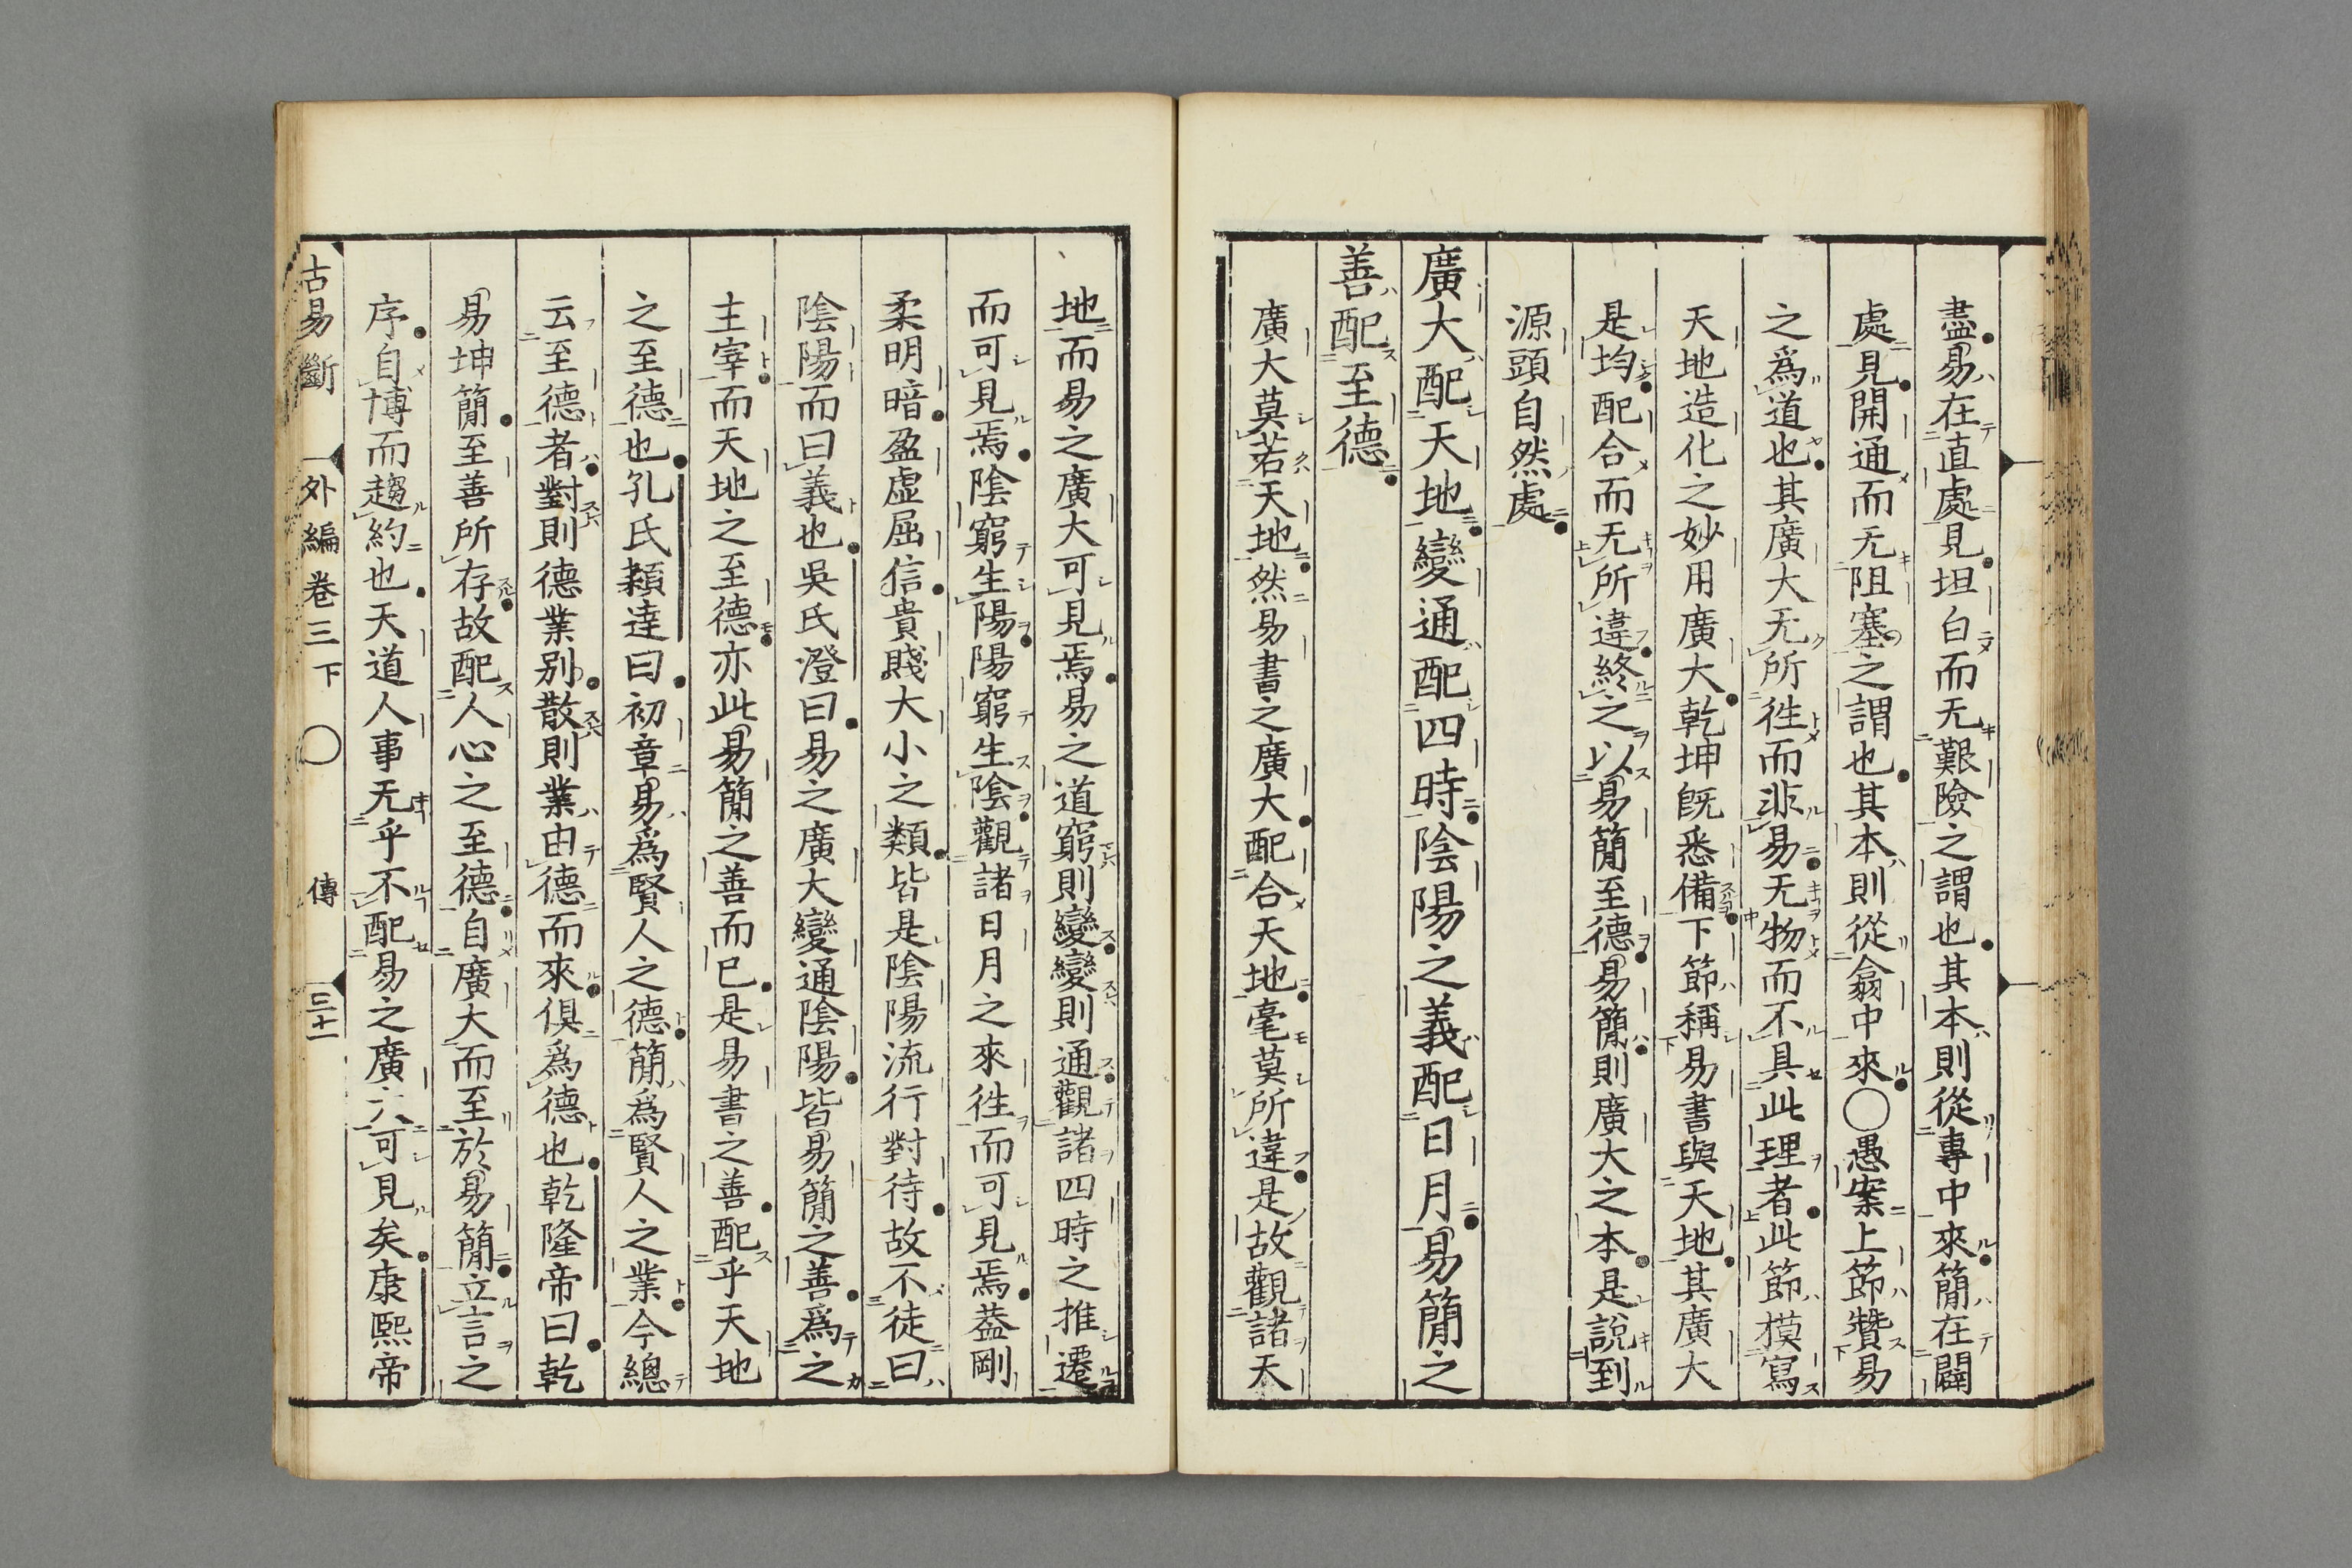 盡易在直處見坦白而无艱險之謂也其本則從專中來簡在闢
處見開通而无阻塞之謂也其本則從翕中來〇愚案上節贊易
之爲道也其廣大无所徃而非易无物而不具此理者此節摸寫
天地造化之妙用廣大乾坤既悉備下節稱易書與天地其廣大
是均配合而无所違終之以易簡至德易簡則廣大之本是說到
源頭自然處
廣大配天地變通配四時陰陽之義配日月易簡之
善配至德
廣大莫若天地然易書之廣大配合天地毫莫所違是故觀諸天
地而易之廣大可見焉易之道窮則變變則通觀諸四時之推遷
而可見焉陰窮生陽陽窮生陰觀諸日月之來徃而可見焉葢剛
柔明暗盈虛屈信貴賤大小之類皆是陰陽流行對待故不徒曰
陰陽而曰義也吳氏澄曰易之廣大變通陰陽皆易簡之善爲之
主宰而天地之至德亦此易簡之善而已是易書之善配乎天地
之至德也孔氏穎達曰初章易爲賢人之德簡爲賢人之業今總
云至德者對則德業別散則業由德而來俱爲德也乾隆帝曰乾
易坤簡至善所存故配人心之至德自廣大而至於易簡立言之
序自博而趨約也天道人事无乎不配易之廣大可見矣康熙帝
古易斷 外編卷三下 〇 傳 三十